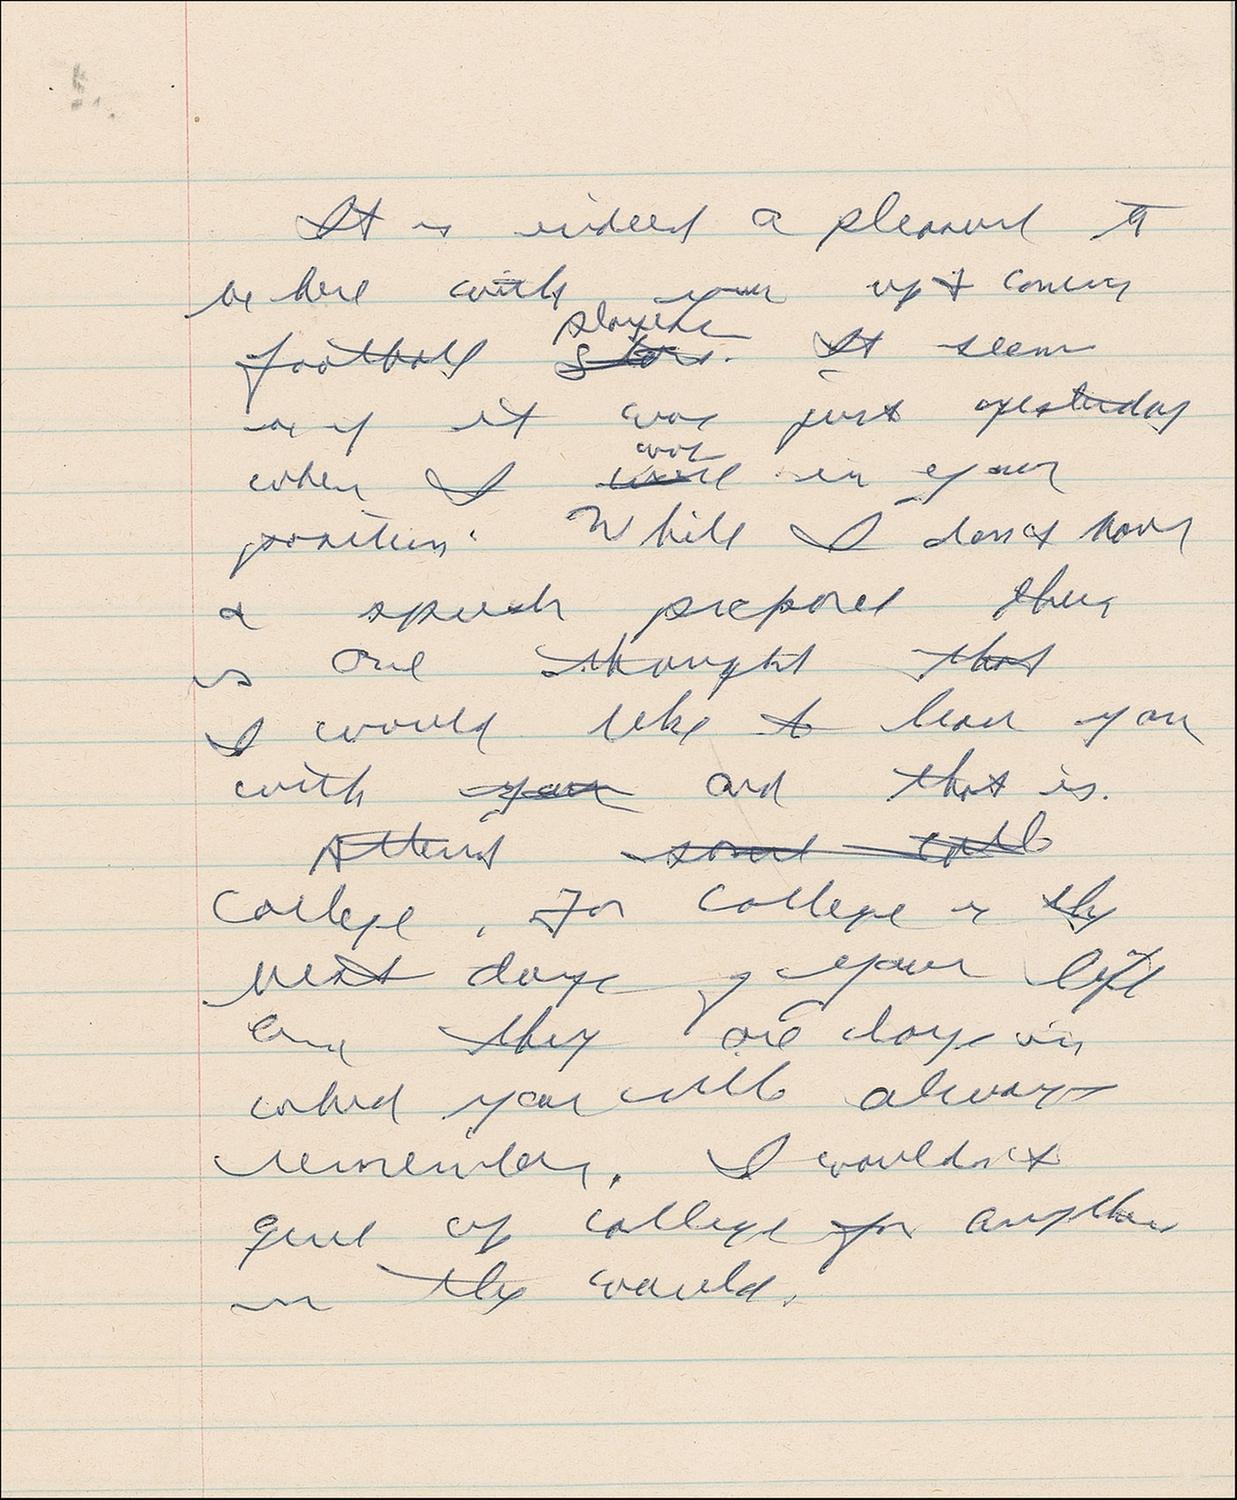 It is indeed a pleasure to
be here with your up & coming
football ~~stars~~ players. It seem
as if it was just yesterday
when I ~~were~~ was in your
position. While I don't have
a speech prepared there
is one thought that
I would like to leave you
with ~~you~~ and that is.
Attend ~~some coll~~
College, For College is the
best days of your life
and they are days in
which you will always
remember. I wouldn't
give up college for anything
in the world.